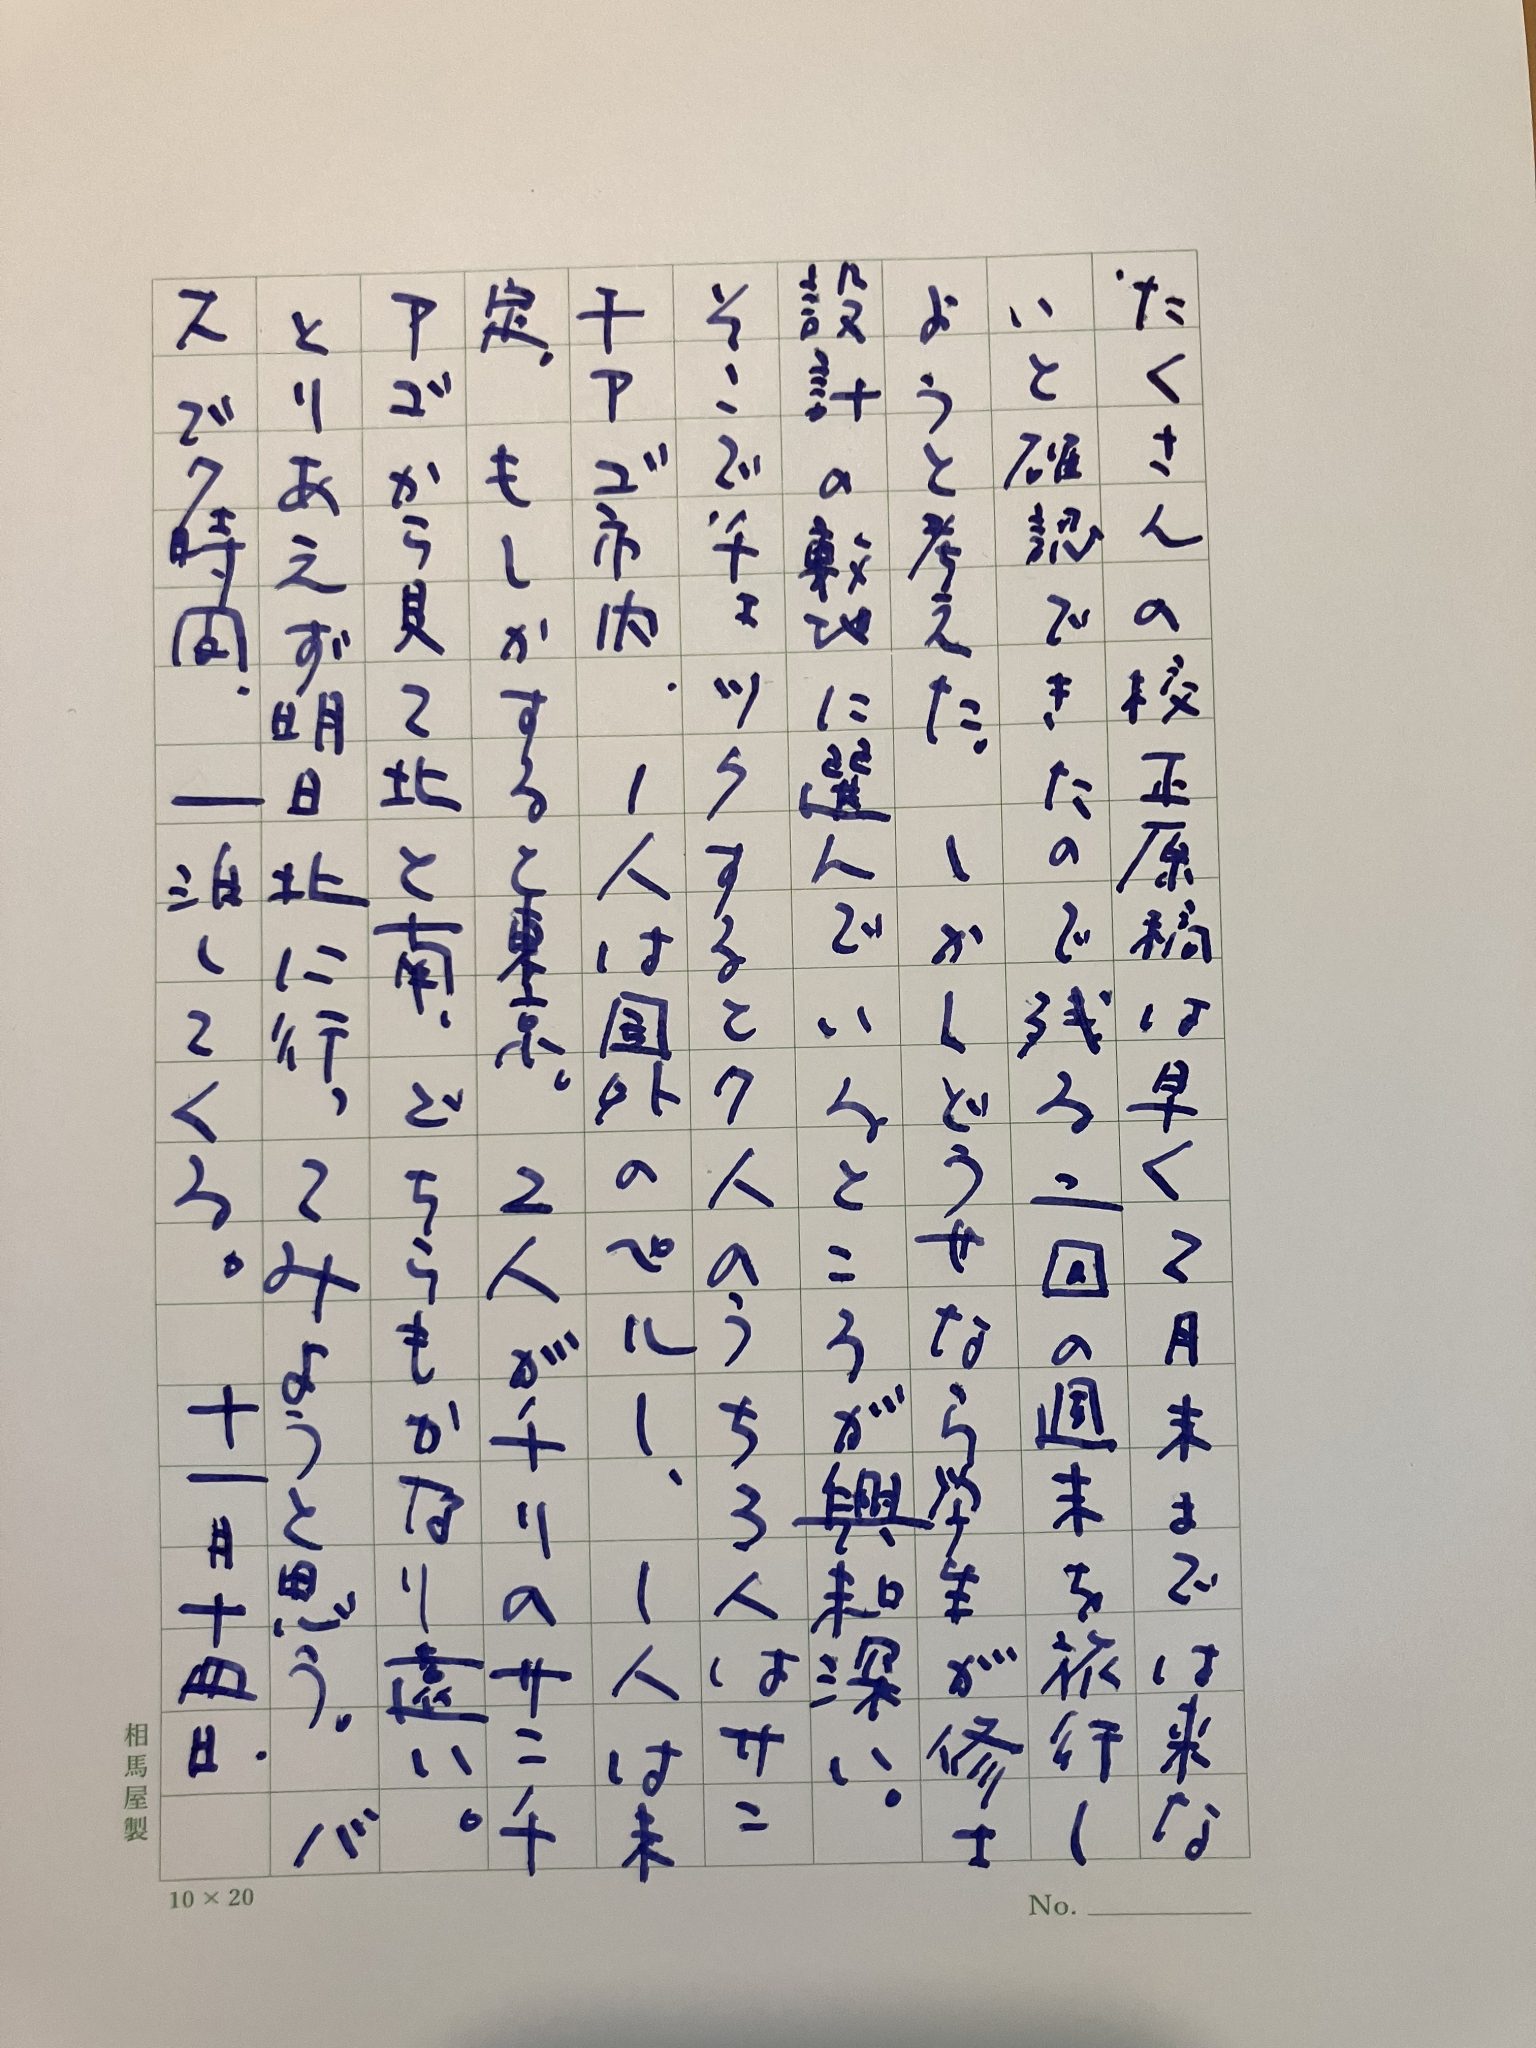 たくさんの校正原稿は早くて月末までは来な
いと確認できたので残る二回の週末を旅行し
ようと考えた。しかしどうせなら学生が修士
設計の敷地に選んでいるところが興味深い。
そこでチェックすると7人のうち3人はサン
チアゴ市内、1人は国外のペルー、1人は未
定。もしかすると東京。2人がチリのサンチ
アゴから見て北と南。どちらもかなり遠い。
とりあえず明日北に行ってみようと思う。バ
スで7時間。一泊してくる。十一月十四日。
相馬屋製
10×20
No.